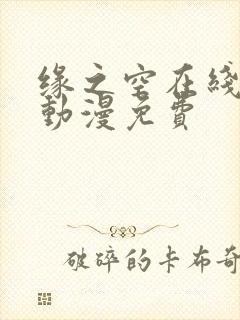 缘之空在线
動漫免費
破碎的卡布奇